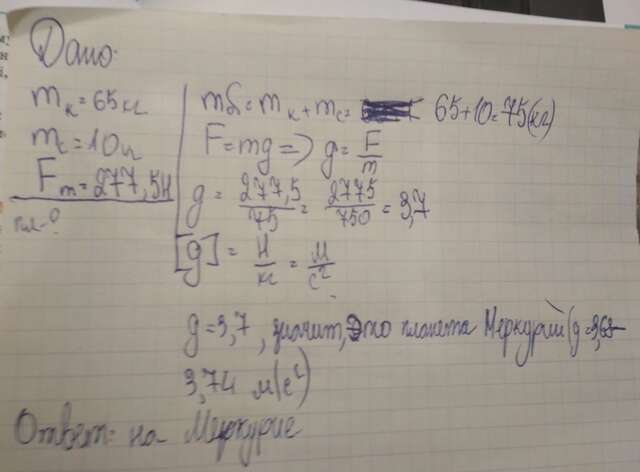 Дано:
mк = 65 кг
mс = 10 кг
Fт = 277,5 Н
пл - ?
mб = mк + mс = 65 + 10 = 75 (кг)
F = mg => g = F/m
g = 277,5/75 = 2775/750 = 3,7
[g] = Н/кг = м/с²
g = 3,7, значит, это планета Меркурий (g = 3,68-
3,74 м/с²)
Ответ: на Меркурие